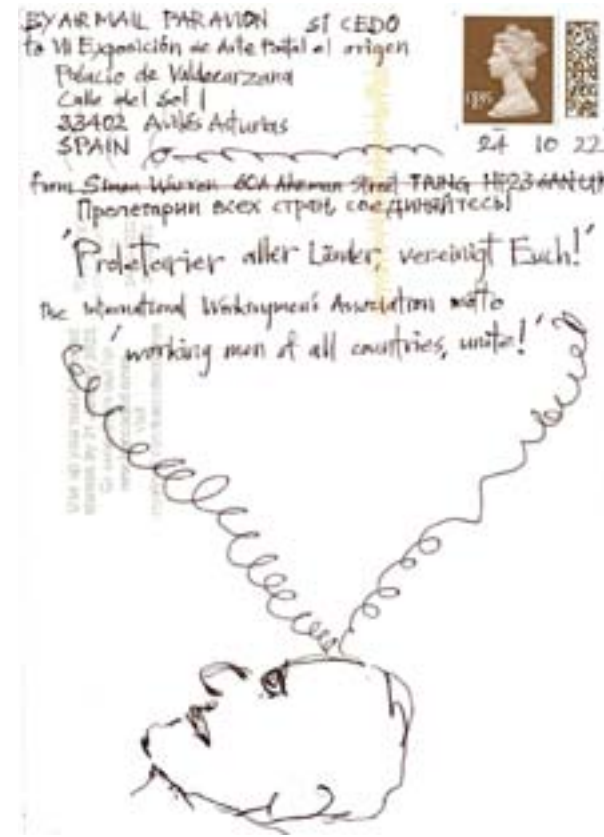 BY AIR MAIL PAR AVION SÍ CEDO
to VII Exposición de Arte Postal el origen
Palacio de Valdecarzana
Calle del Sol 1
33402 Avilés Asturias
SPAIN
£1.85
24 10 22
from Simon Warren 60A Akeman Street TRING HP23 6AN UK
Пролетарии всех стран, соединяйтесь!
'Proletarier aller Länder, vereinigt Euch!'
the International Workingmen's Association motto
'working men of all countries, unite!'